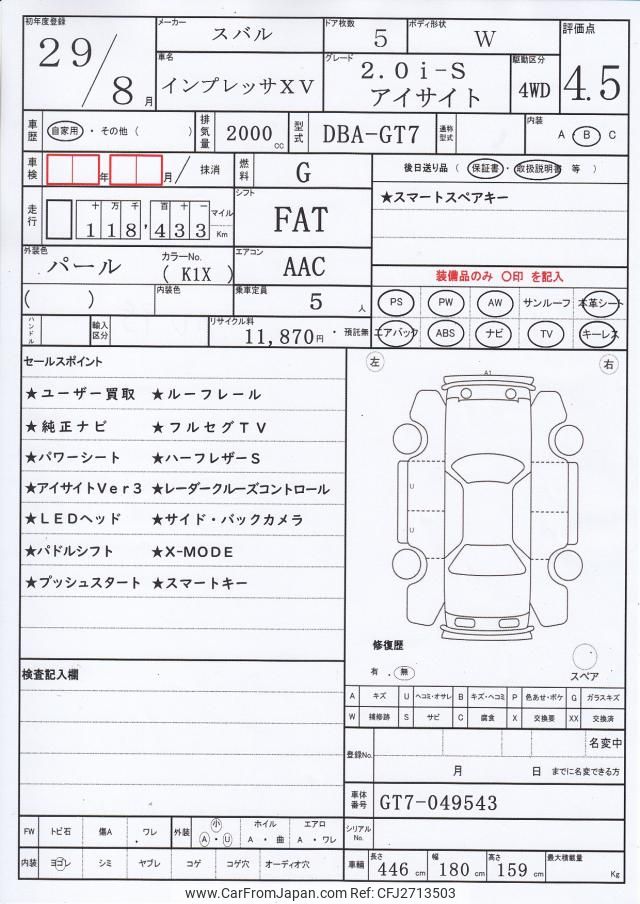 初年度登録
29/8月
メーカー スバル
ドア枚数 5
ボディ形状 W
評価点 4.5
車名 インプレッサXV
グレード 2.0i-S
アイサイト
駆動区分 4WD
車歴 自家用・その他 ( )
排気量 2000cc
型式 DBA-GT7
通称型式
内装 A B C
車検 年 月/ 抹消
燃料 G
後日送り品 ( 保証書・取扱説明書 等 )
走行 十 万 千 百 十 一
118,433 マイル Km
シフト FAT
★スマートスペアキー
外装色 パール
カラーNo. ( K1X )
エアコン AAC
装備品のみ 〇印 を記入
( )
内装色
乗車定員 5人
PS PW AW サンルーフ 本革シート
ハンドル
輸入区分
リサイクル料 11,870円・預託無
エアバック ABS ナビ TV キーレス
セールスポイント
★ユーザー買取 ★ルーフレール
★純正ナビ ★フルセグTV
★パワーシート ★ハーフレザーS
★アイサイトVer3 ★レーダークルーズコントロール
★LEDヘッド ★サイド・バックカメラ
★パドルシフト ★X-MODE
★プッシュスタート ★スマートキー
左 右
A1
U
U
修復歴
有 . 無
スペア
検査記入欄
A キズ U ヘコミ・オサレ B キズ・ヘコミ P 色あせ・ボケ G ガラスキズ
W 補修跡 S サビ C 腐食 X 交換要 XX 交換済
登録No. 名変中
月 日 までに名変できる方
車体番号 GT7-049543
シリアルNo.
FW トビ石 傷A ワレ
外装 小 A・U
ホイル A・曲
エアロ A・ワレ
内装 ヨゴレ シミ ヤブレ コゲ コゲ穴 オーディオ穴
車輌 長さ 446cm 幅 180cm 高さ 159cm 最大積載量 Kg
www.CarFromJapan.com Ref: CFJ2713503